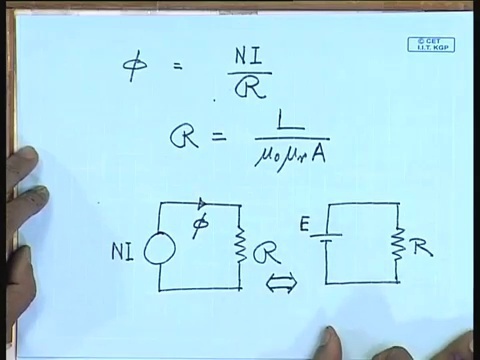 © CET
I.I.T. KGP
ϕ = NI / ℛ
ℛ = L / μ₀μᵣA
NI ϕ ℛ ⇔ E R